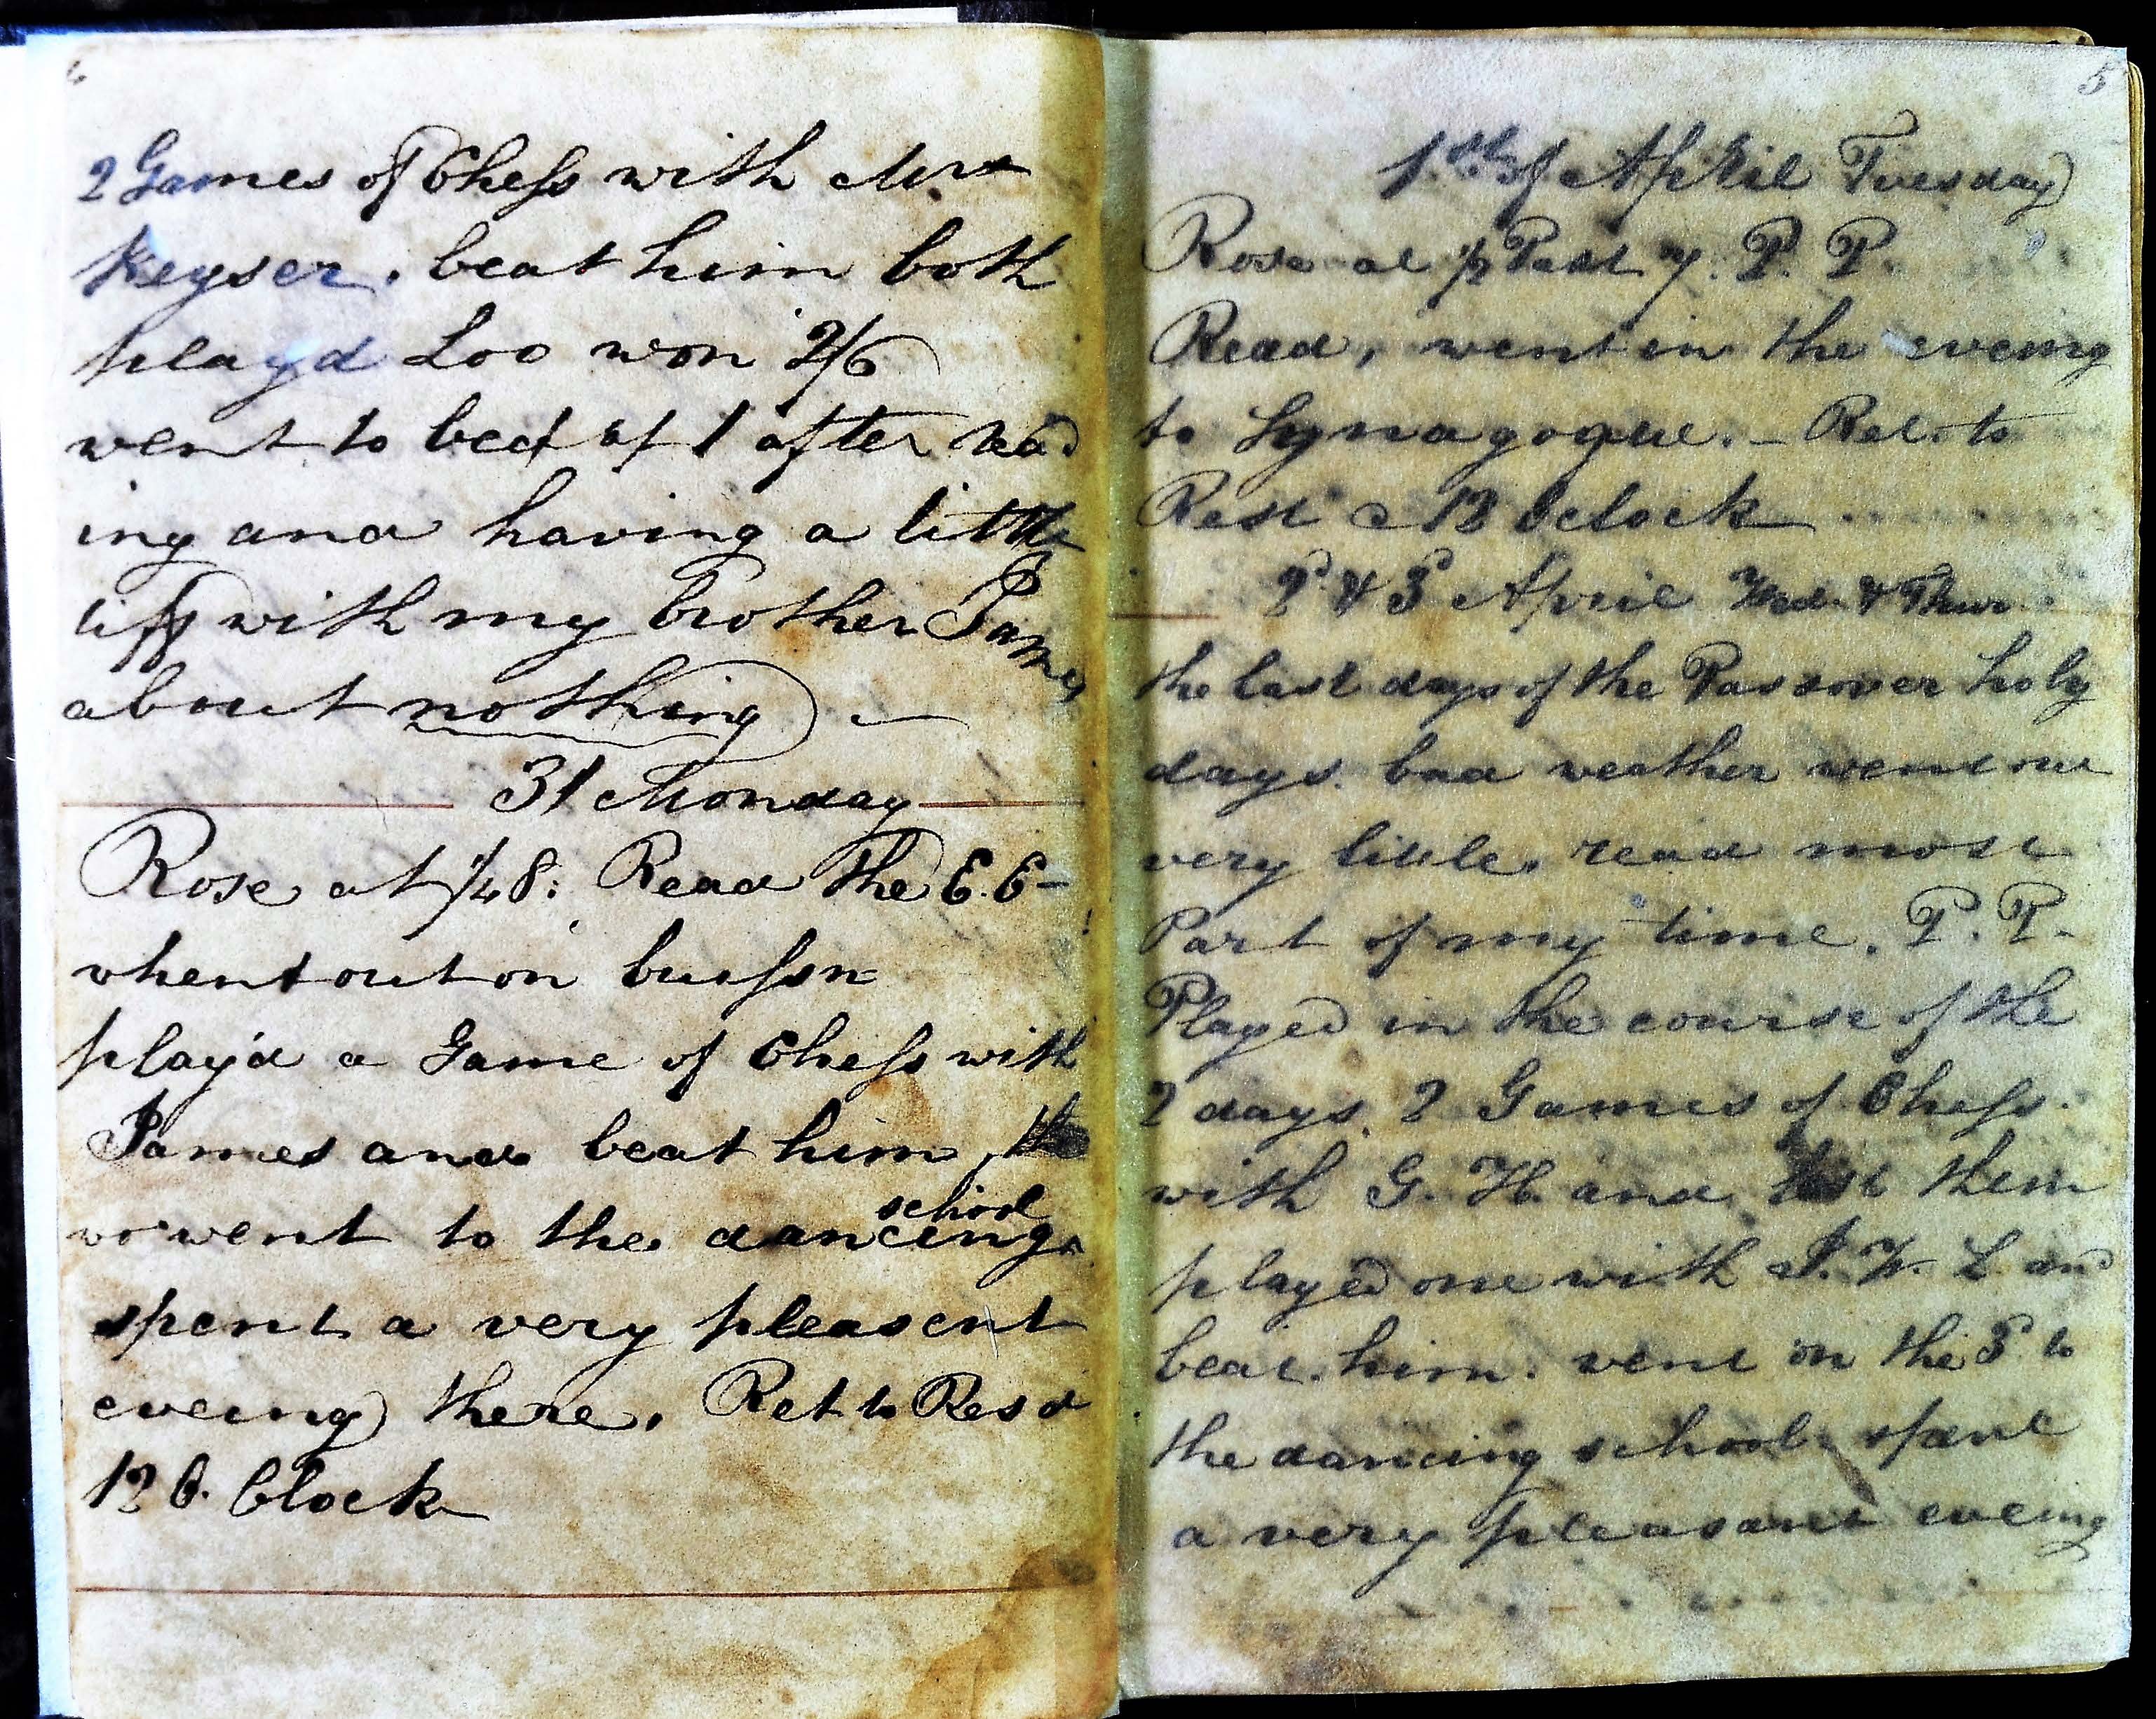 2 Games of Chess with Mr
Keyser. beat him both
playd Loo won 2/6
went to bed at 1 after read
ing and having a little
tiff with my brother James
about nothing —
31 Monday
Rose at 1/4 8: Read the E. E—
whent out on bussn
play'd a Game of Chess with
James and beat him
went to the dancing
school
spent a very pleasent
eveing there. Ret to Res a
12 O. Clock
5
1st of April Tuesday
Rose at 1/2 Past 7. P. P.
Read, went in the eveing
to Synagogue. — Ret. to
Rest a 12 Oclock
2 & 3 April Wed. & Thur.
the last days of the Passover holy
days. bad weather went out
very little. read most
Part of my time. P. P.
Played in the course of the
2 days. 2 Games of Chess.
with G. H. and lost them
played one with J. W. L. and
beat him. went on the 3 to
the dancing school spent
a very pleasant eveing